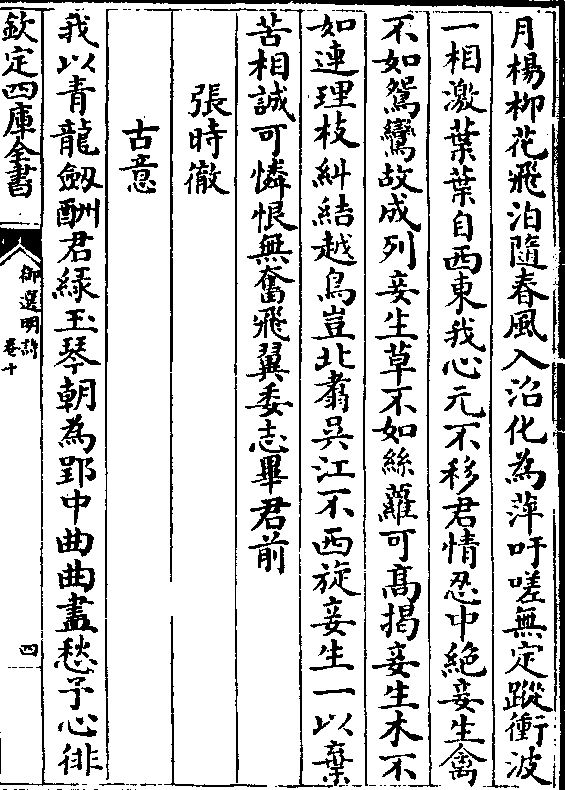 月楊柳花飛泊隨春風入沼化為萍吁嗟無定蹤衝波
一相激葉葉自西東我心元不移君情忍中絶妾生禽
不如鴛鸞故成列妾生草不如絲蘿可髙揭妾生木不
如連理枝糾結越鳥豈北翥吳江不西旋妾生一以棄
苦相誠可憐恨無奮飛翼委志畢君前
張時徹
古意
我以青龍劔酬君緑玉琴朝為郢中曲曲盡愁予心徘
欽定四庫全書
御選明詩
卷十
四